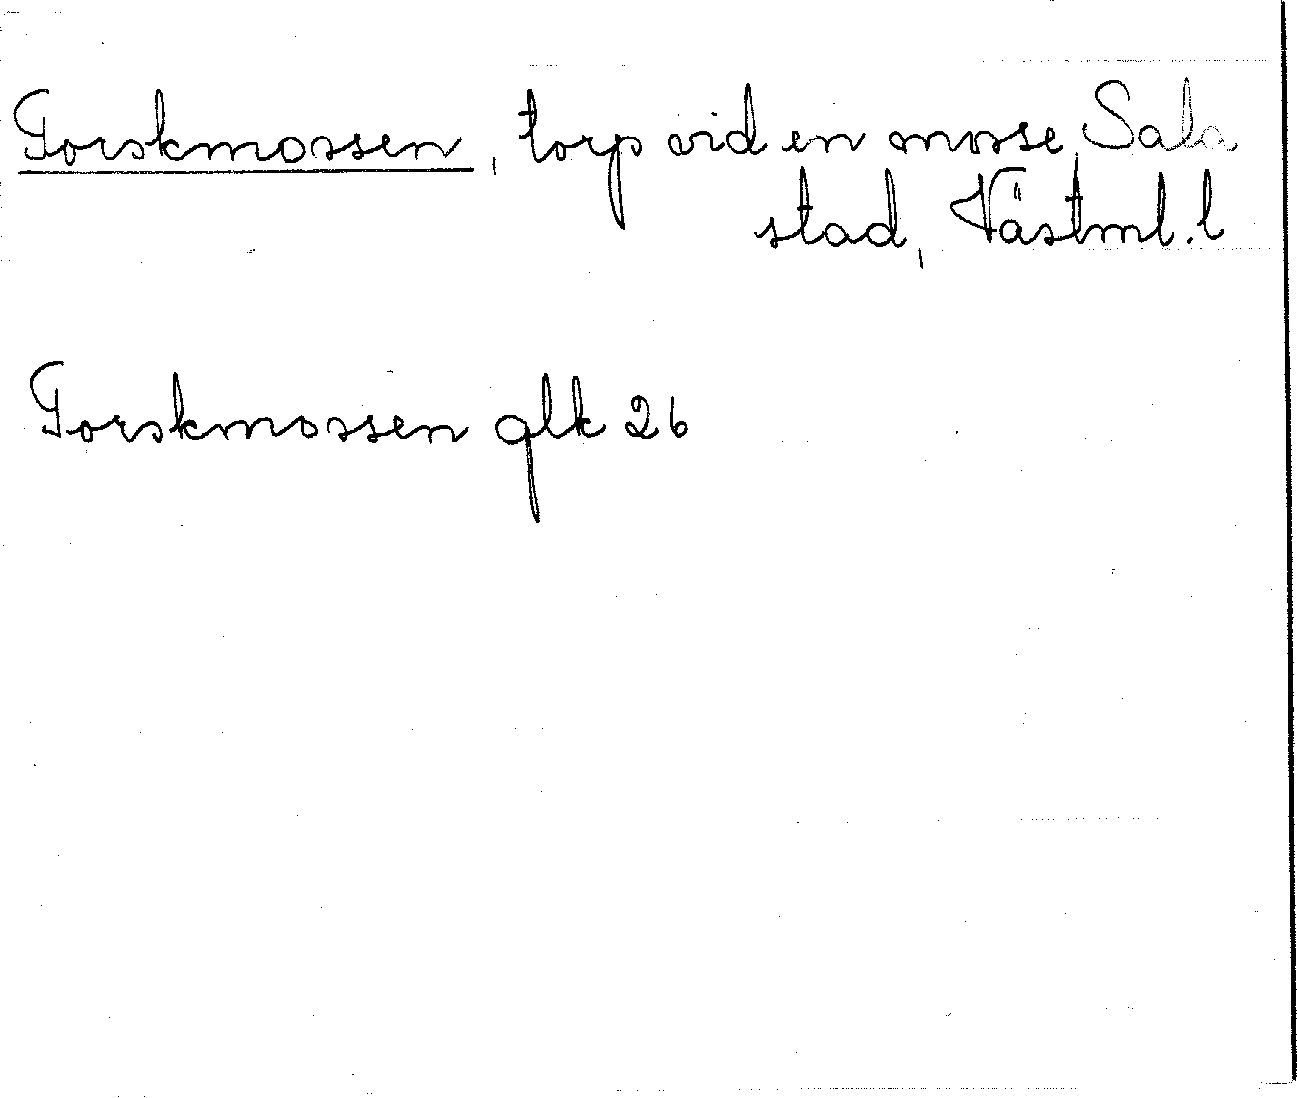 Torskmossen, torp vid en mosse, Sala
stad, Västml. l
Torskmossen glk 26